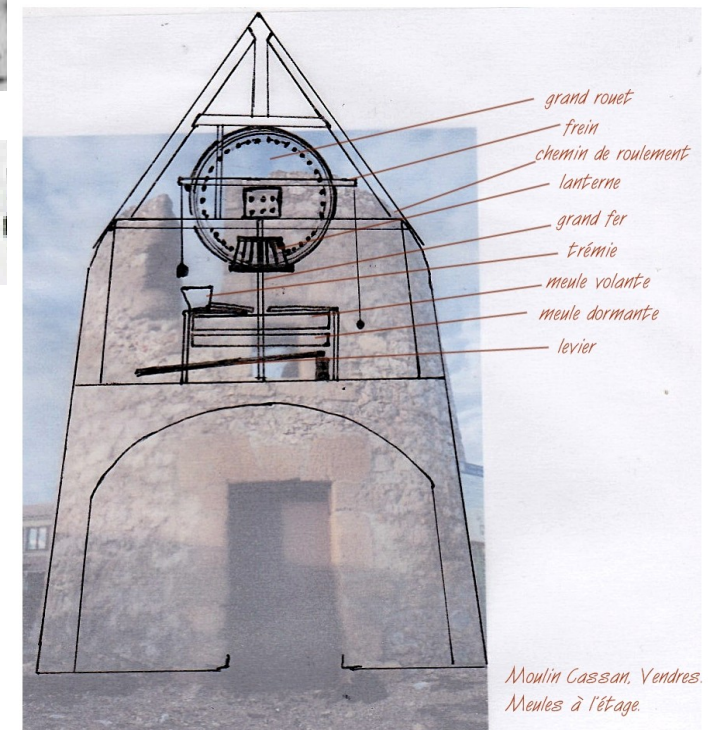 grand rouet
frein
chemin de roulement
lanterne
grand fer
trémie
meule volante
meule dormante
levier
Moulin Cassan, Vendres.
Meules à l'étage.